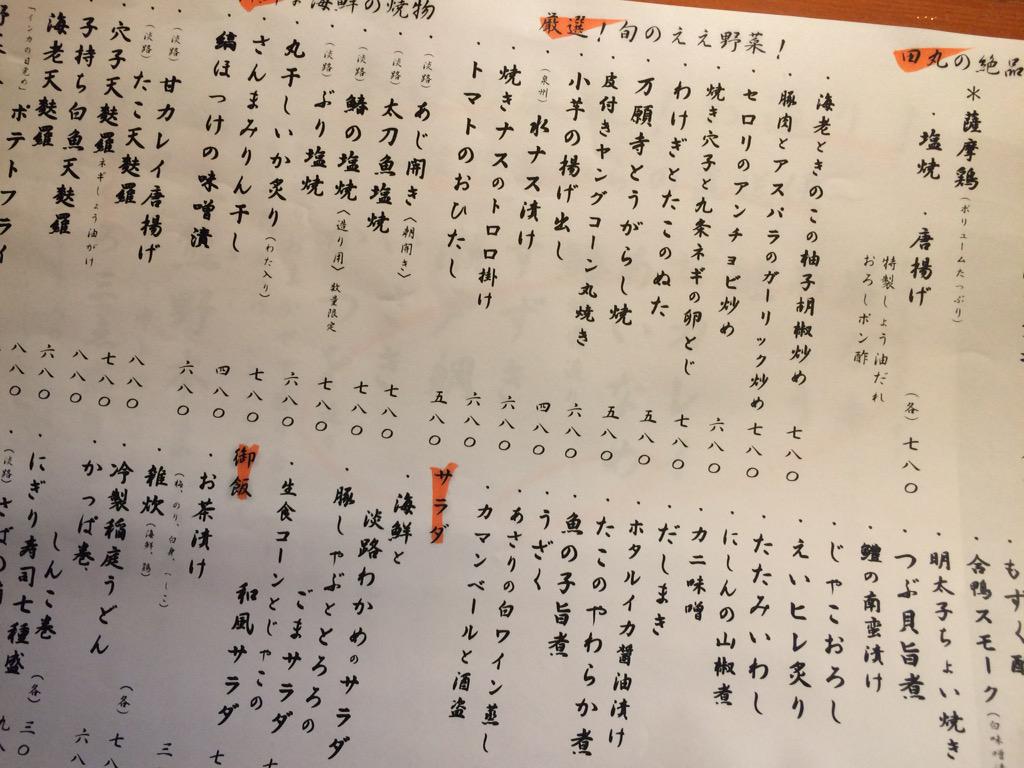 田丸の絶品
＊薩摩鶏（ボリュームたっぷり）
・塩焼 ・唐揚げ（各）七八〇
特製しょう油だれ
おろしポン酢
厳選！旬のええ野菜！
・海老ときのこの柚子胡椒炒め 七八〇
・豚肉とアスパラのガーリック炒め 七八〇
・セロリのアンチョビ炒め 六八〇
・焼き穴子と九条ネギの卵とじ 七八〇
・わけぎとたこのぬた 五八〇
・万願寺とうがらし焼 五八〇
・皮付きヤングコーン丸焼き 六八〇
・小芋の揚げ出し 四八〇
・（泉州）水ナス漬け 六八〇
・焼きナスのトロロ掛け 六八〇
・トマトのおひたし 五八〇
海鮮の焼物
・（淡路）あじ開き（朝開き） 七八〇
・（淡路）太刀魚塩焼 七八〇
・（淡路）鰆の塩焼（造り用）数量限定 七八〇
・（淡路）ぶり塩焼 六八〇
・丸干しいか炙り（わた入り） 七八〇
・さんまみりん干し 四八〇
・縞ほっけの味噌漬 六八〇
・（淡路）甘カレイ唐揚げ 八八〇
・（淡路）たこ天麩羅 七八〇
・穴子天麩羅 ネギしょう油がけ 八八〇
・子持ち白魚天麩羅 六八〇
・海老天麩羅 八八〇
（インカの目覚め）ポテトフライ
もずく酢
・合鴨スモーク
・明太子ちょい焼き
・つぶ貝旨煮
・鱧の南蛮漬け
・じゃこおろし
・えいヒレ炙り
・たたみいわし
・にしんの山椒煮
・カニ味噌
・だしまき
・ホタルイカ醤油漬け
・たこのやわらか煮
・魚の子旨煮
・うざく
・あさりの白ワイン蒸し
・カマンベールと酒盗
サラダ
・海鮮と
淡路わかめのサラダ
・豚しゃぶととろろの
ごまサラダ
・生食コーンとじゃこの
和風サラダ
御飯
・お茶漬け
・雑炊（海鮮、鶏）
・冷製稲庭うどん
・かっぱ巻・しんこ巻（各）
・にぎり寿司七種盛
（淡路）さばの